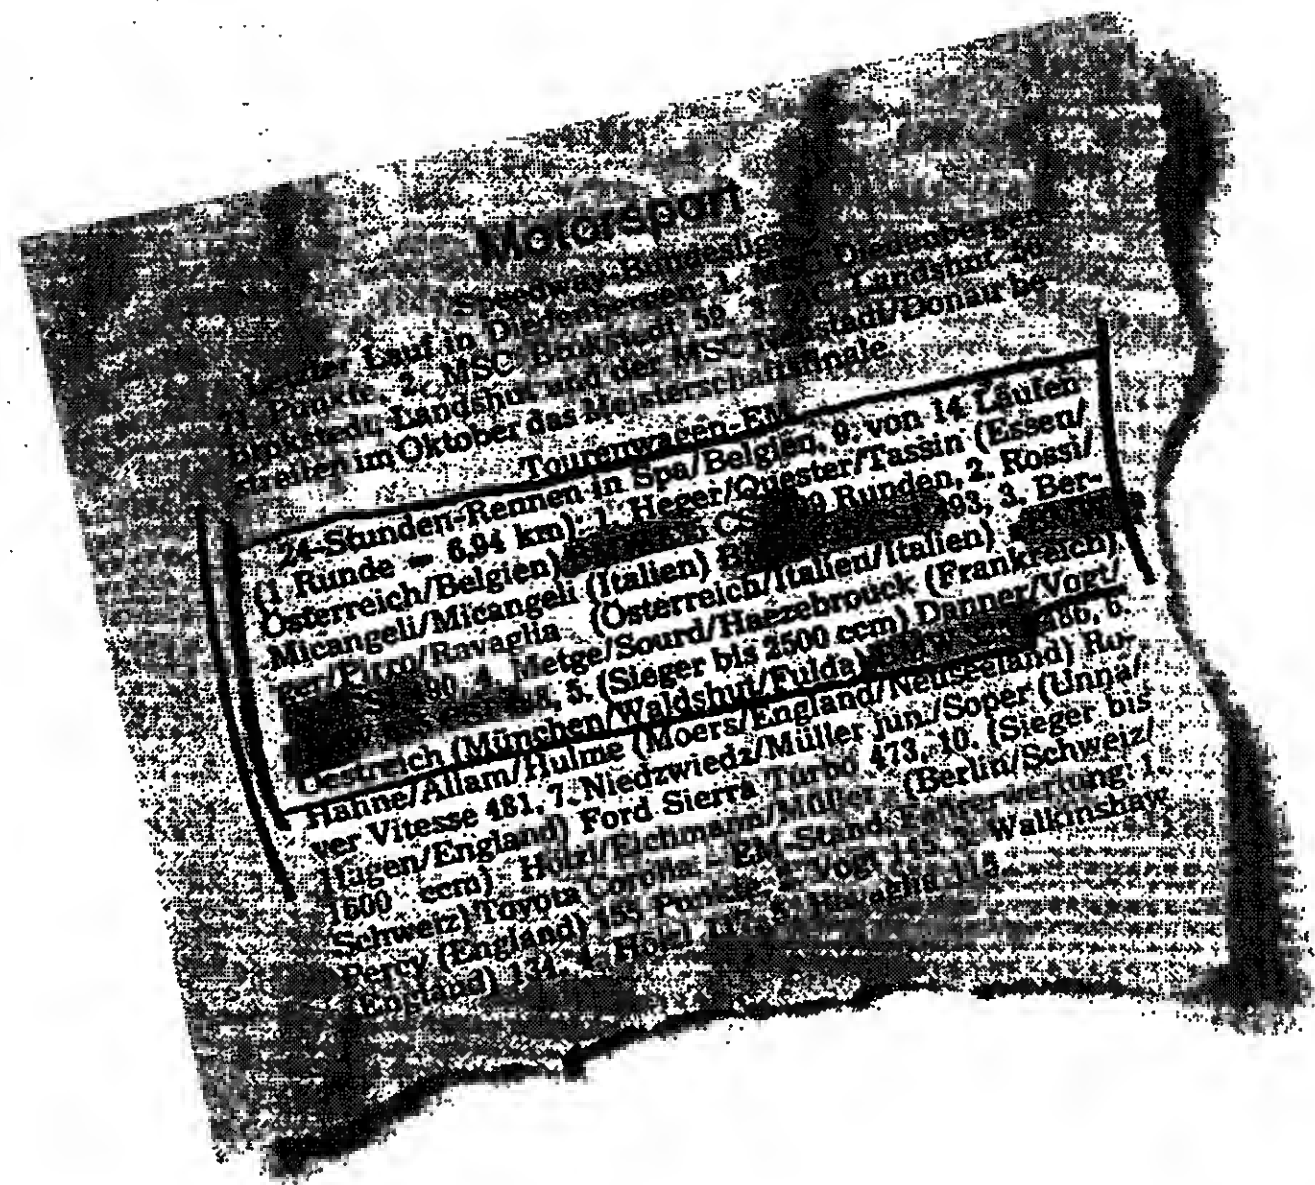 Motorsport
Speedway-Bundesliga
Lauf in Diedenbergen: 1. MSC Diedenbergen
Punkte, 2. MSC Brokstedt 3. AC Landshut
Brokstedt, Landshut und der MSC Neustadt/Donau be-
streiten im Oktober das Meisterschaftsfinale
Tourenwagen-EM
24-Stunden-Rennen in Spa/Belgien, 9. von 14 Läufen
(1 Runde = 6,94 km): 1. Heger/Quester/Tassin (Essen/
Österreich/Belgien) Runden, 2. Rossi/
Micangeli/Micangeli (Italien) 493, 3. Ber-
ger/Pirro/Ravaglia (Österreich/Italien/Italien)
490, 4. Metge/Sourd/Haezebrouck (Frankreich)
5. (Sieger bis 2500 ccm) Danner/Vogt/
Oestreich (München/Waldshut/Fulda) 486, 6.
Hahne/Allam/Hulme (Moers/England/Neuseeland) Ro-
ver Vitesse 481, 7. Niedzwiedz/Müller jun./Soper (Unna/
Hagen/England) Ford Sierra Turbo 473, 10. (Sieger bis
1600 ccm) Müller (Berlin/Schweiz/
Schweiz) Toyota Corolla. – EM-Stand, Fahrerwertung: 1.
Percy (England) 2. Vogt 145, 3. Walkinshaw
(England) 134, 4. 5. Ravaglia